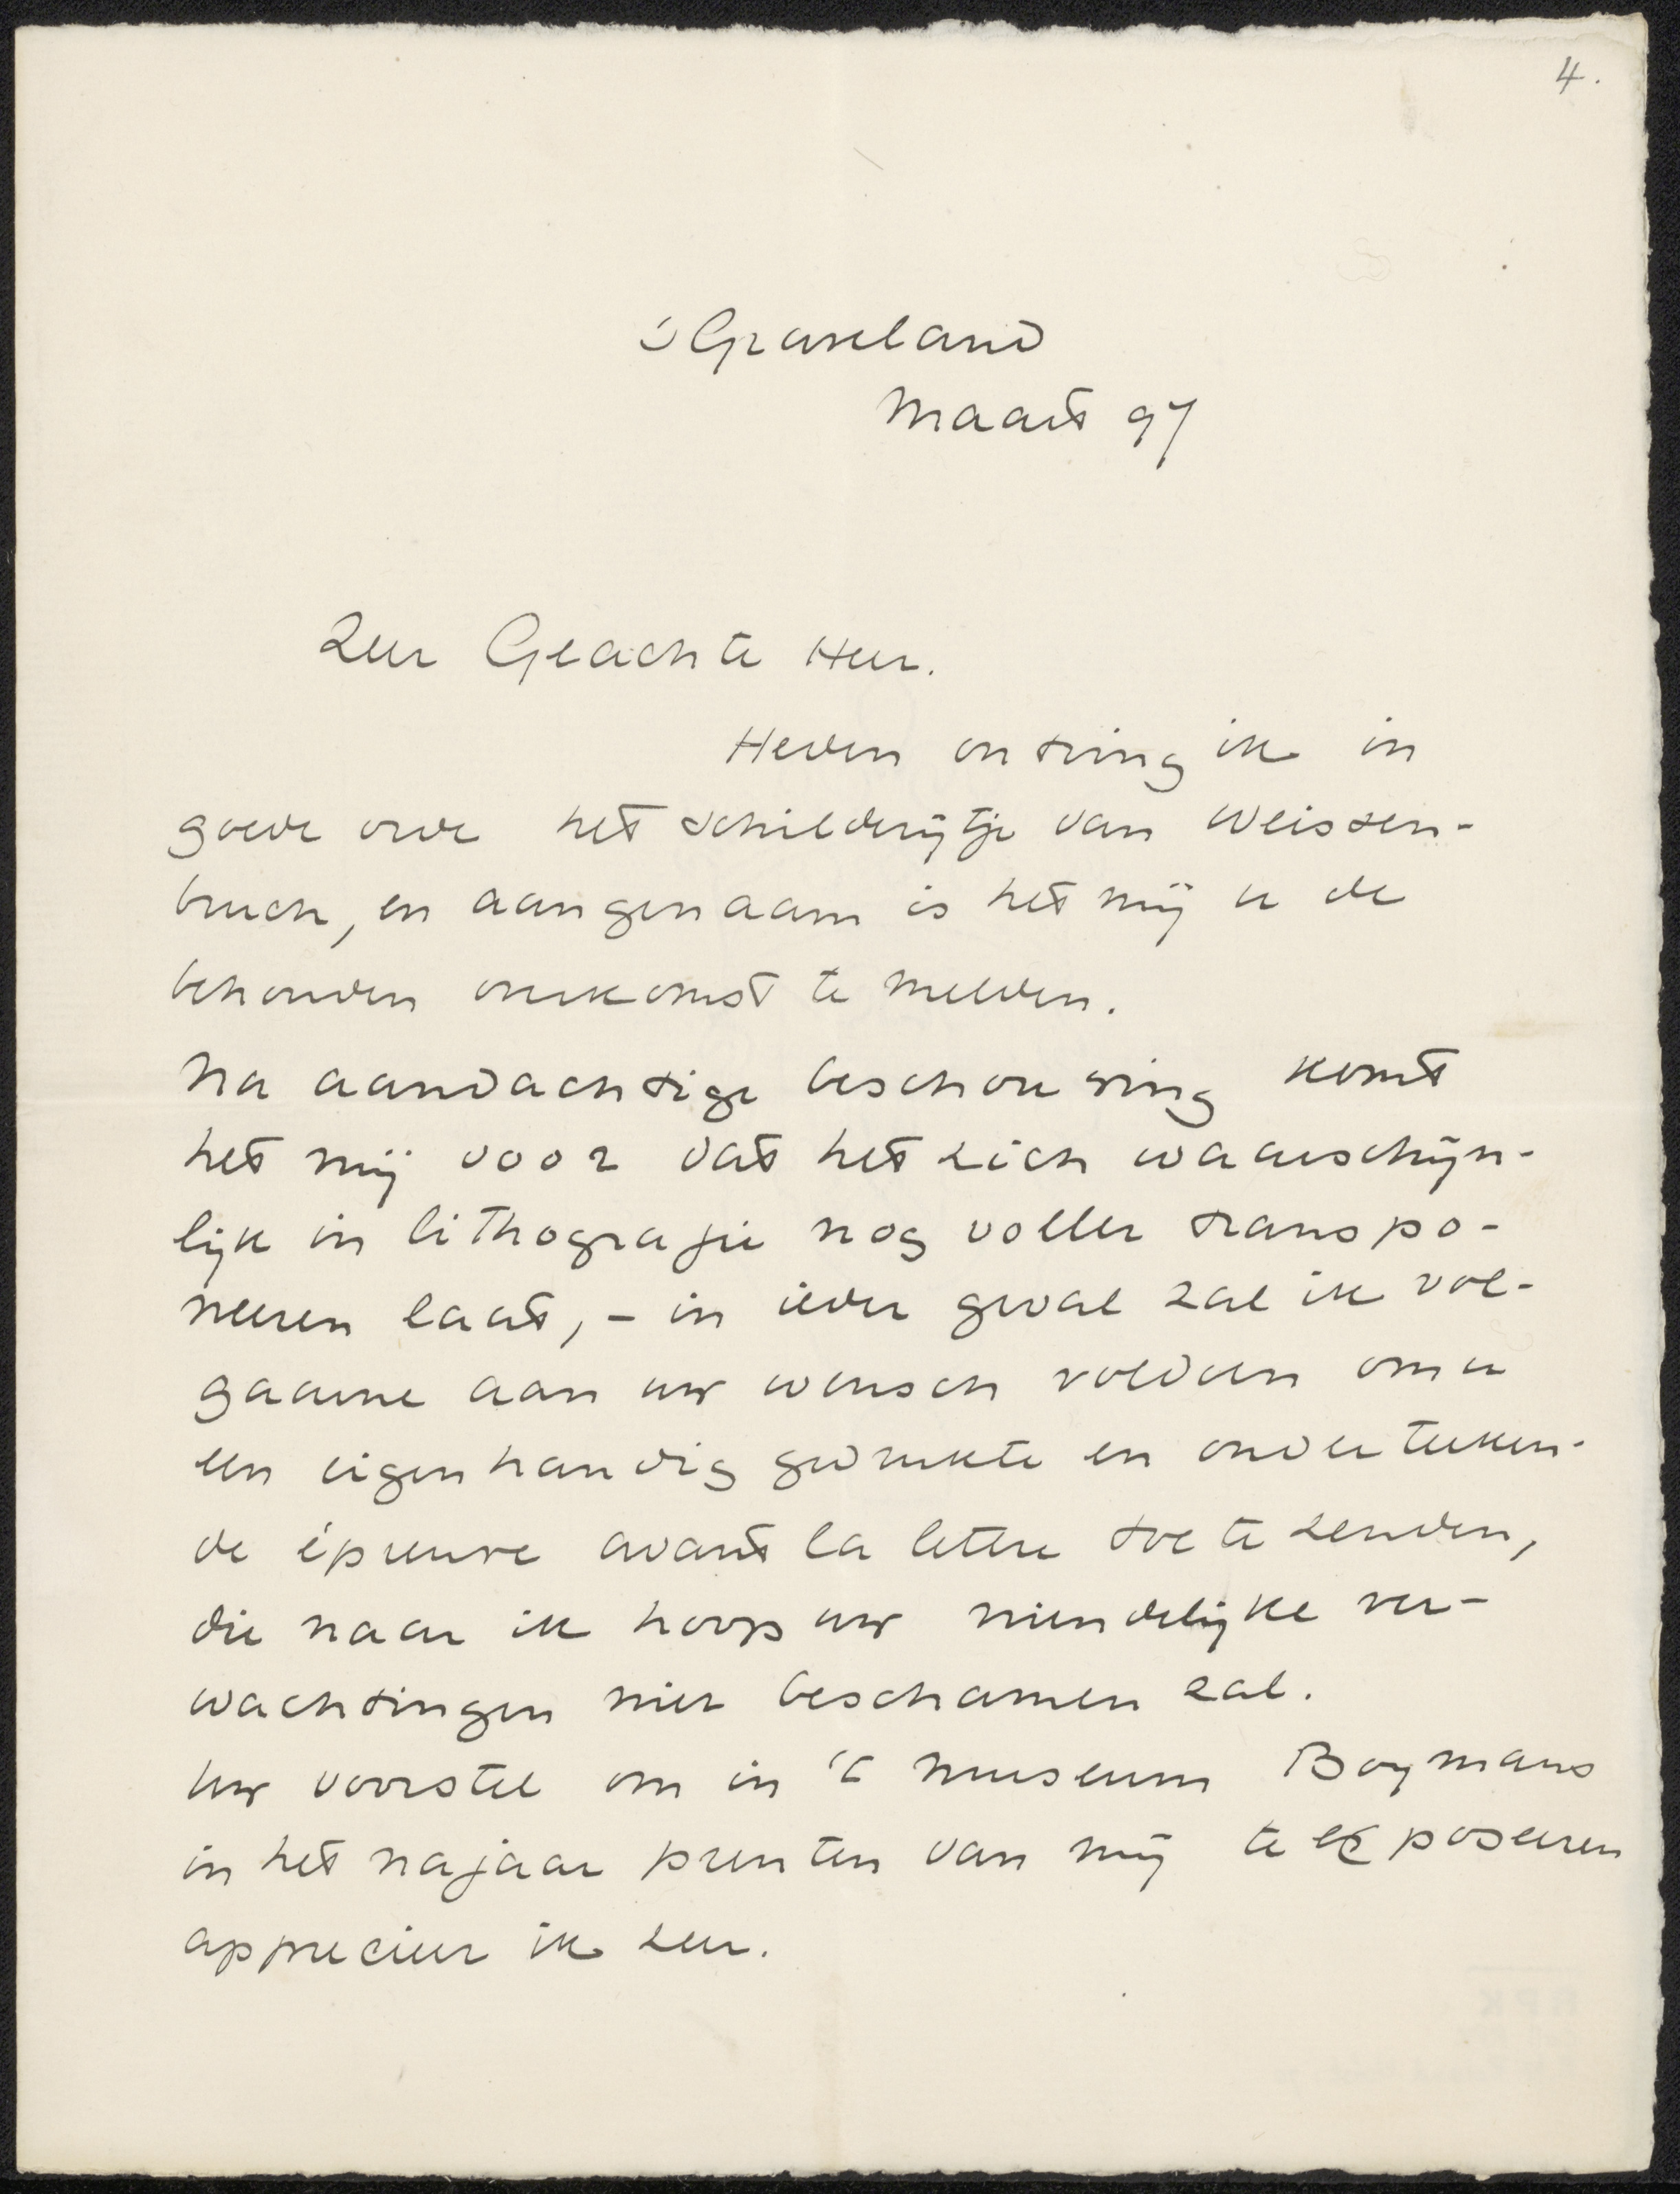 4.
's Graveland
Maart 97
Zeer Geachte Heer.
Heden ontving ik in
goede orde het schilderijtje van Weissen-
bruch, en aangenaam is het mij u de
behouden overkomst te melden.
Na aandachtige beschouwing komt
het mij voor dat het zich waarschijn-
lijk in lithografie nog voller transpo-
neeren laat, - in ieder geval zal ik vol-
gaarne aan uw wensch voldoen om u
een eigenhandig gedrukte en onderteeken-
de épreuve avant la lettre toe te zenden,
die naar ik hoop uw vriendelijke ver-
wachtingen niet beschamen zal.
Uw voorstel om in 't museum Boymans
in het najaar prenten van mij te exposeeren
apprecieer ik zeer.